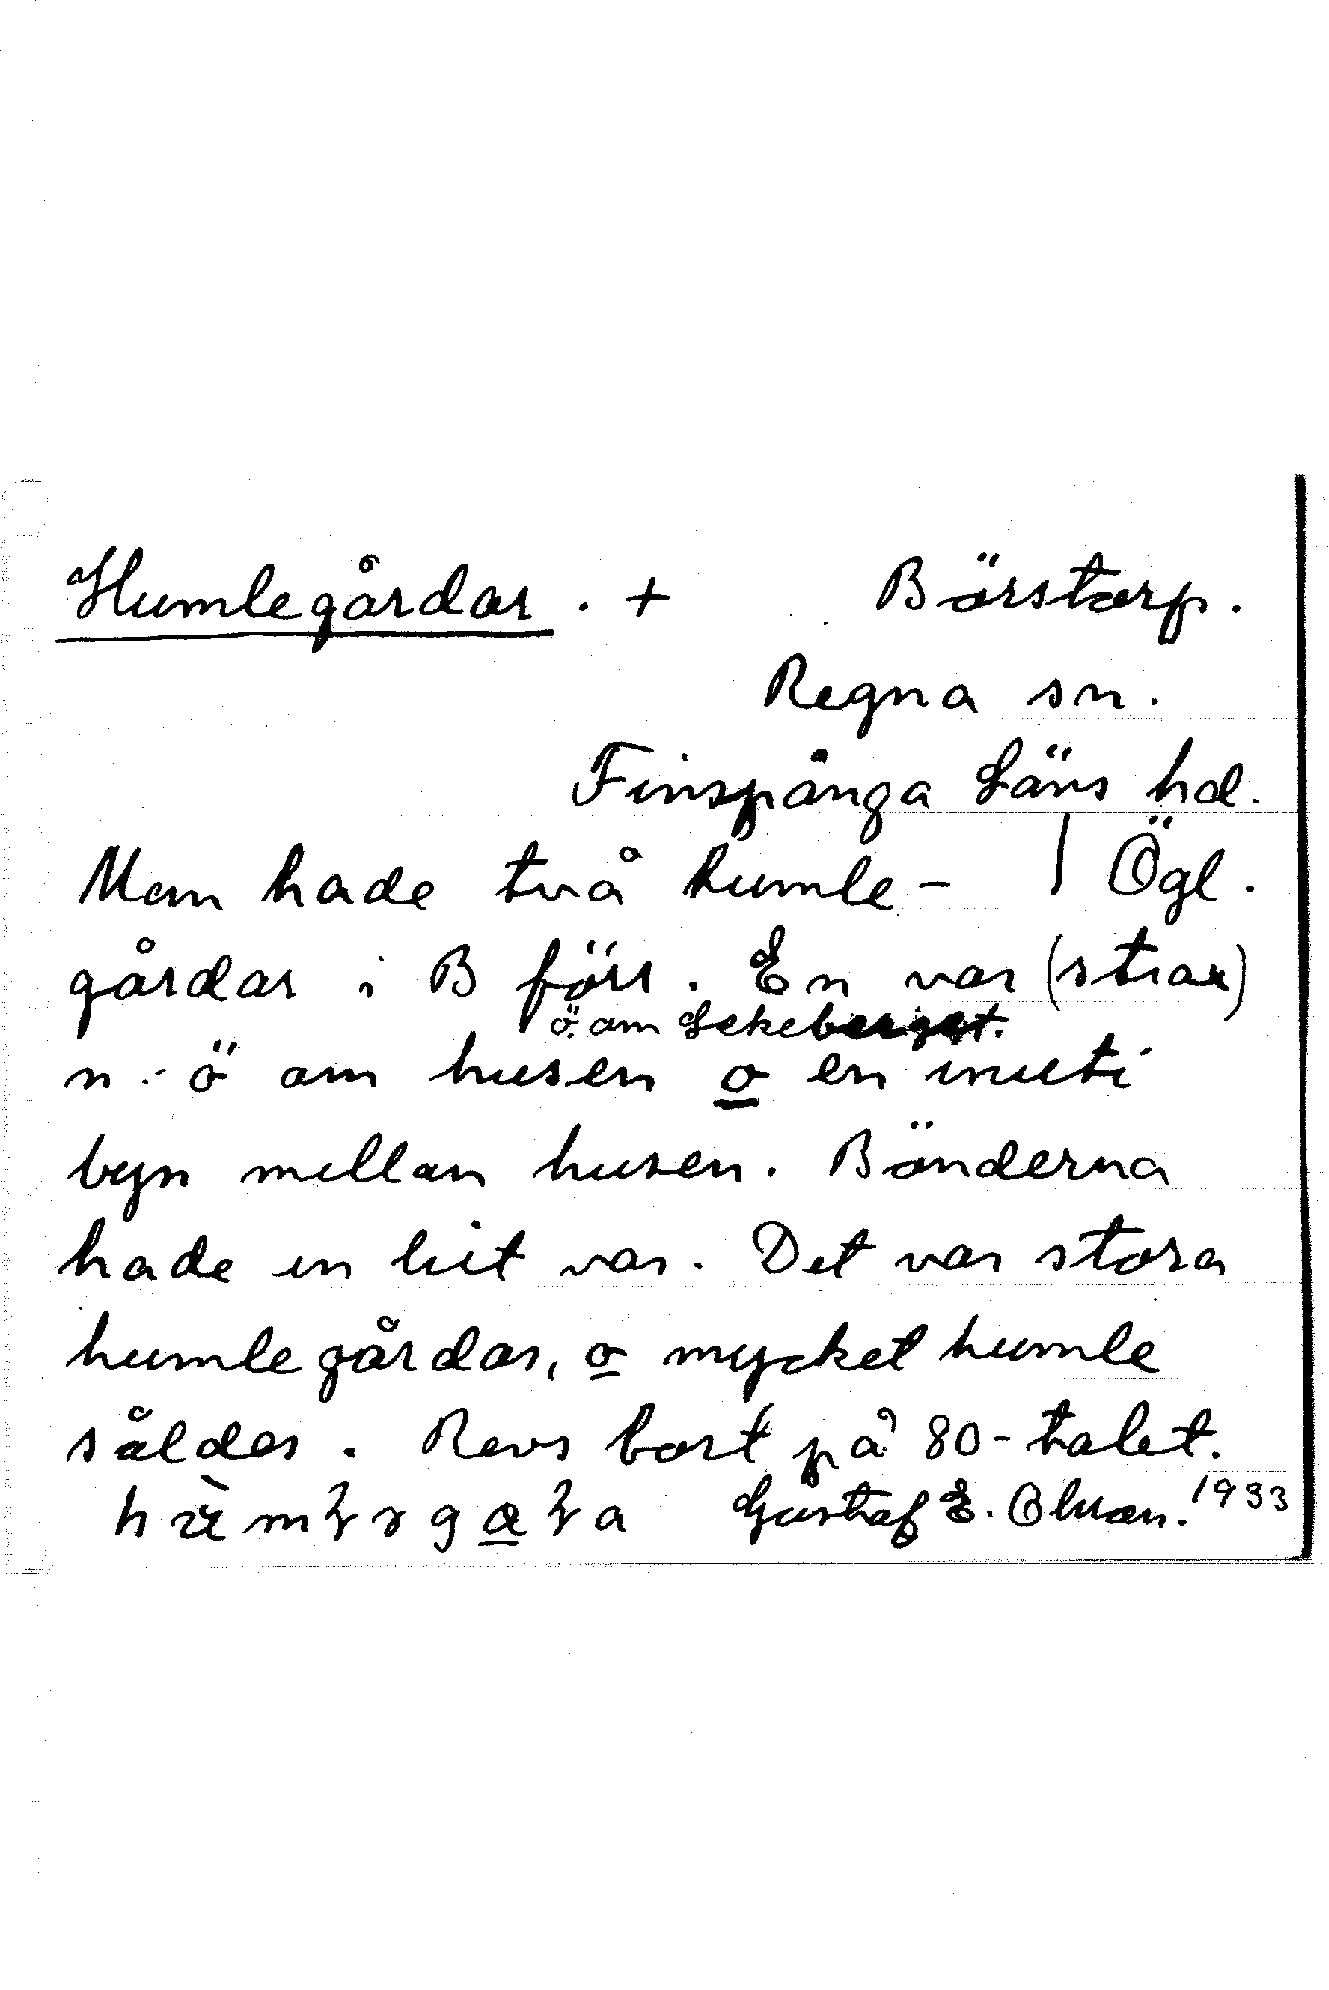 Humlegårdar. + Börstorp.
Regna sn.
Finspånga Läns hd.
Man hade två humle- | Ögl.
gårdar i B förr. En var (strax)
ö. om Lekeberget.
n. ö om husen o en inuti
byn mellan husen. Bönderna
hade en bit var. Det var stora
humlegårdar, o mycket humle
såldes. Revs bort på 80-talet.
Gustaf E. Olman. 1933